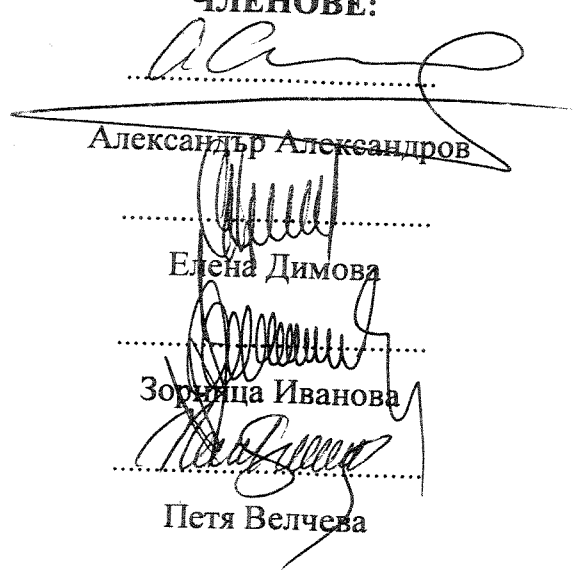 ЧЛЕНОВЕ:
Александър Александров
Елена Димова
Зорница Иванова
Петя Велчева